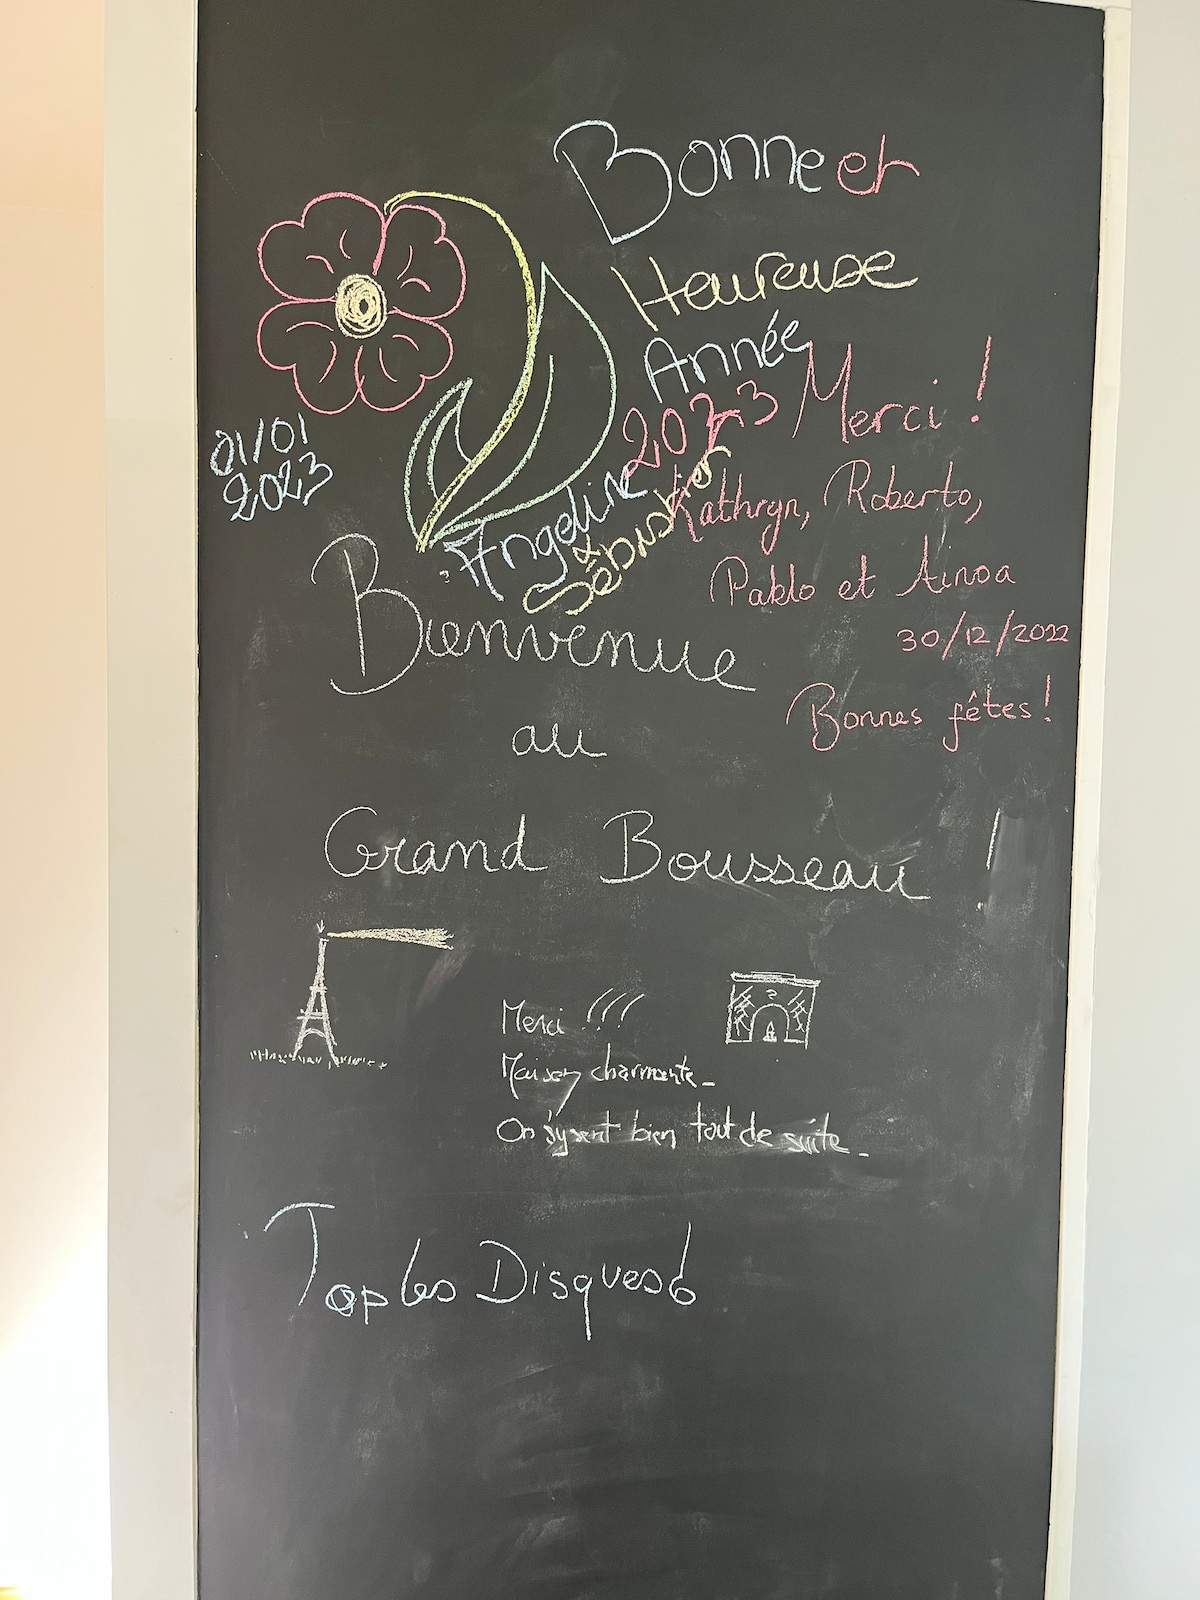 Bonne et
Heureuse
Année
2023
Angeline
&
Sébastien
01/01
2023
Merci !
Kathryn, Roberto,
Pablo et Ainoa
30/12/2022
Bonnes fêtes !
Bienvenue
au
Grand Bousseau !
Merci !!!
Maison charmante_
On s'y sent bien tout de suite_
Top les Disques